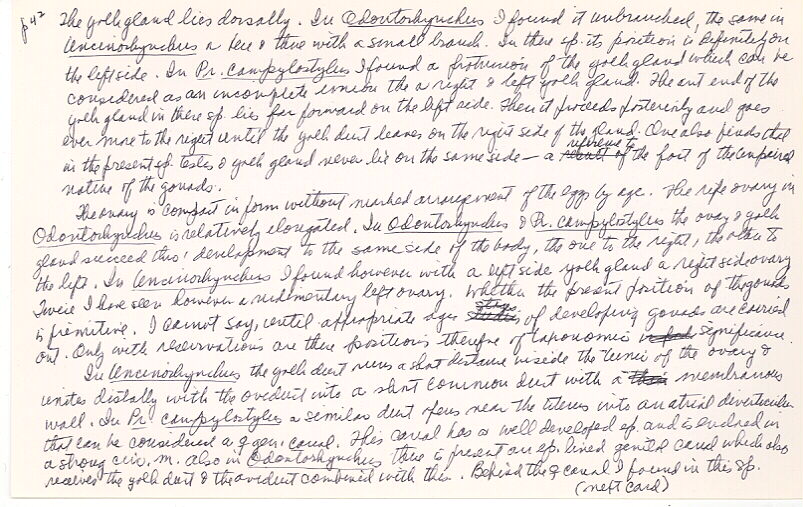 p 42 The yolk gland lies dorsally. In Odontorhynchus I found it unbranched, the same in
Uncinorhynchus a here & there with a small branch. In these sp. its position is definitely on
the left side. In Pr. campylostylus I found a protrusion of the yolk gland which can be
considered as an incomplete union the a right & left yolk gland. The ant end of the
yolk gland in these sp. lies far forward on the left side. Then it proceeds posteriorly and goes
ever more to the right until the yolk duct leaves on the right side of the gland. One also finds that
in the present sp. testes & yolk gland never lie on the same side — a reference to the fact of the unpaired
nature of the gonads.
The ovary is compact in form without marked arrangement of the eggs by age. The ripe ovary in
Odontorhynchus is relatively elongated. In Odontorhynchus & Pr. campylostylus the ovary & yolk
gland succeed this development to the same side of the body, the one to the right, the other to
the left. In Uncinorhynchus I found however with a left side yolk gland a right side ovary
Twice I have seen however a rudimentary left ovary. Whether the present position of the gonads
is primitive. I cannot say, until appropriate stages of developing gonads are carried
out. Only with reservations are these positions therefore of taxonomic significance.
In Uncinorhynchus the yolk duct runs a short distance inside the tunic of the ovary &
unites distally with the oviduct into a short common duct with a membranous
wall. In Pr. campylostylus a similar duct opens near the uterus into an atrial diverticulum
that can be considered a ♀ gen. canal. This canal has a well developed ep. and is enclosed in
a strong circ. m. also in Odontorhynchus there is present an ep. lined genital canal which also
receives the yolk duct & the oviduct combined with this. Behind the ♀ canal I found in this sp.
(next card)